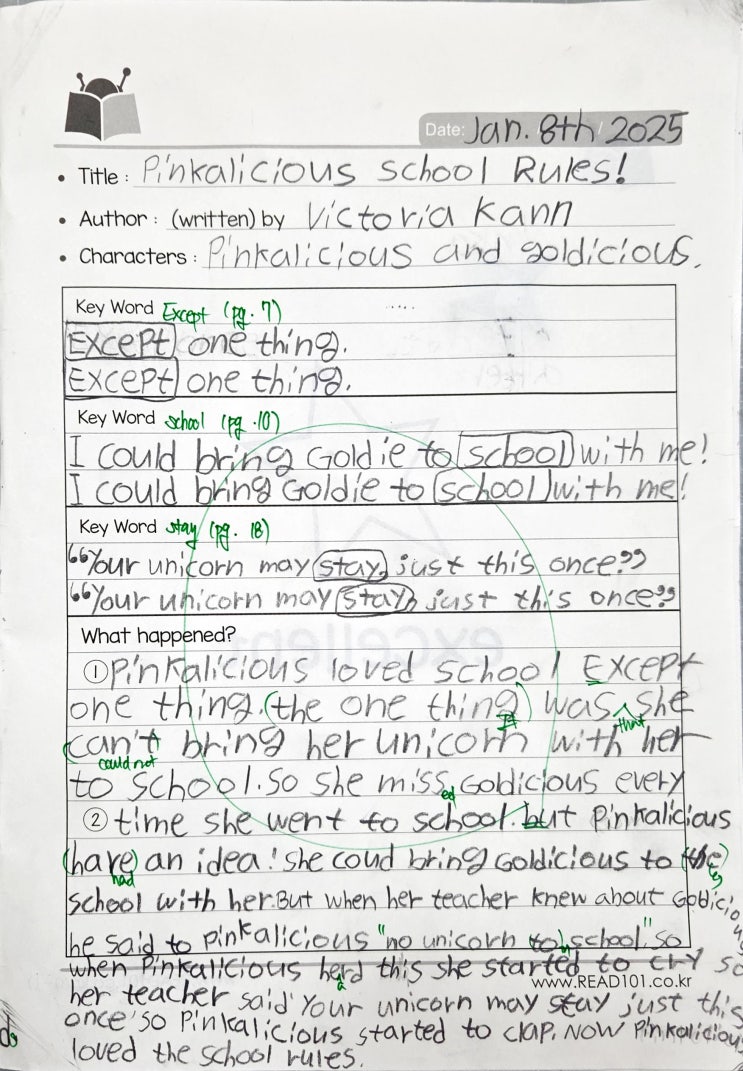 Date: Jan. 8th / 2025
• Title : Pinkalicious school Rules!
• Author : (written) by Victoria Kann
• Characters : Pinkalicious and goldicious.
Key Word Except (pg. 7)
Except one thing.
Except one thing.
Key Word school (pg. 10)
I could bring Goldie to school with me!
I could bring Goldie to school with me!
Key Word stay (pg. 18)
“Your unicorn may stay, just this once”
“Your unicorn may stay, just this once”
What happened?
① Pinkalicious loved school Except
one thing. (the one thing) was she
It that
can't bring her unicorn with her
could not
to school. so she missed Goldicious every
② time she went to school. but Pinkalicious
(have) an idea! she coud bring Goldicious to (the)
had
school with her. But when her teacher knew about
he said to pinkalicious "no unicorn to school" so
when Pinkalicious herd this she started to cry so
www.READ101.co.kr
her teacher said 'Your unicorn may stay just this
once' so Pinkalicious started to clap. Now Pinkalicious
loved the school rules.
excellent